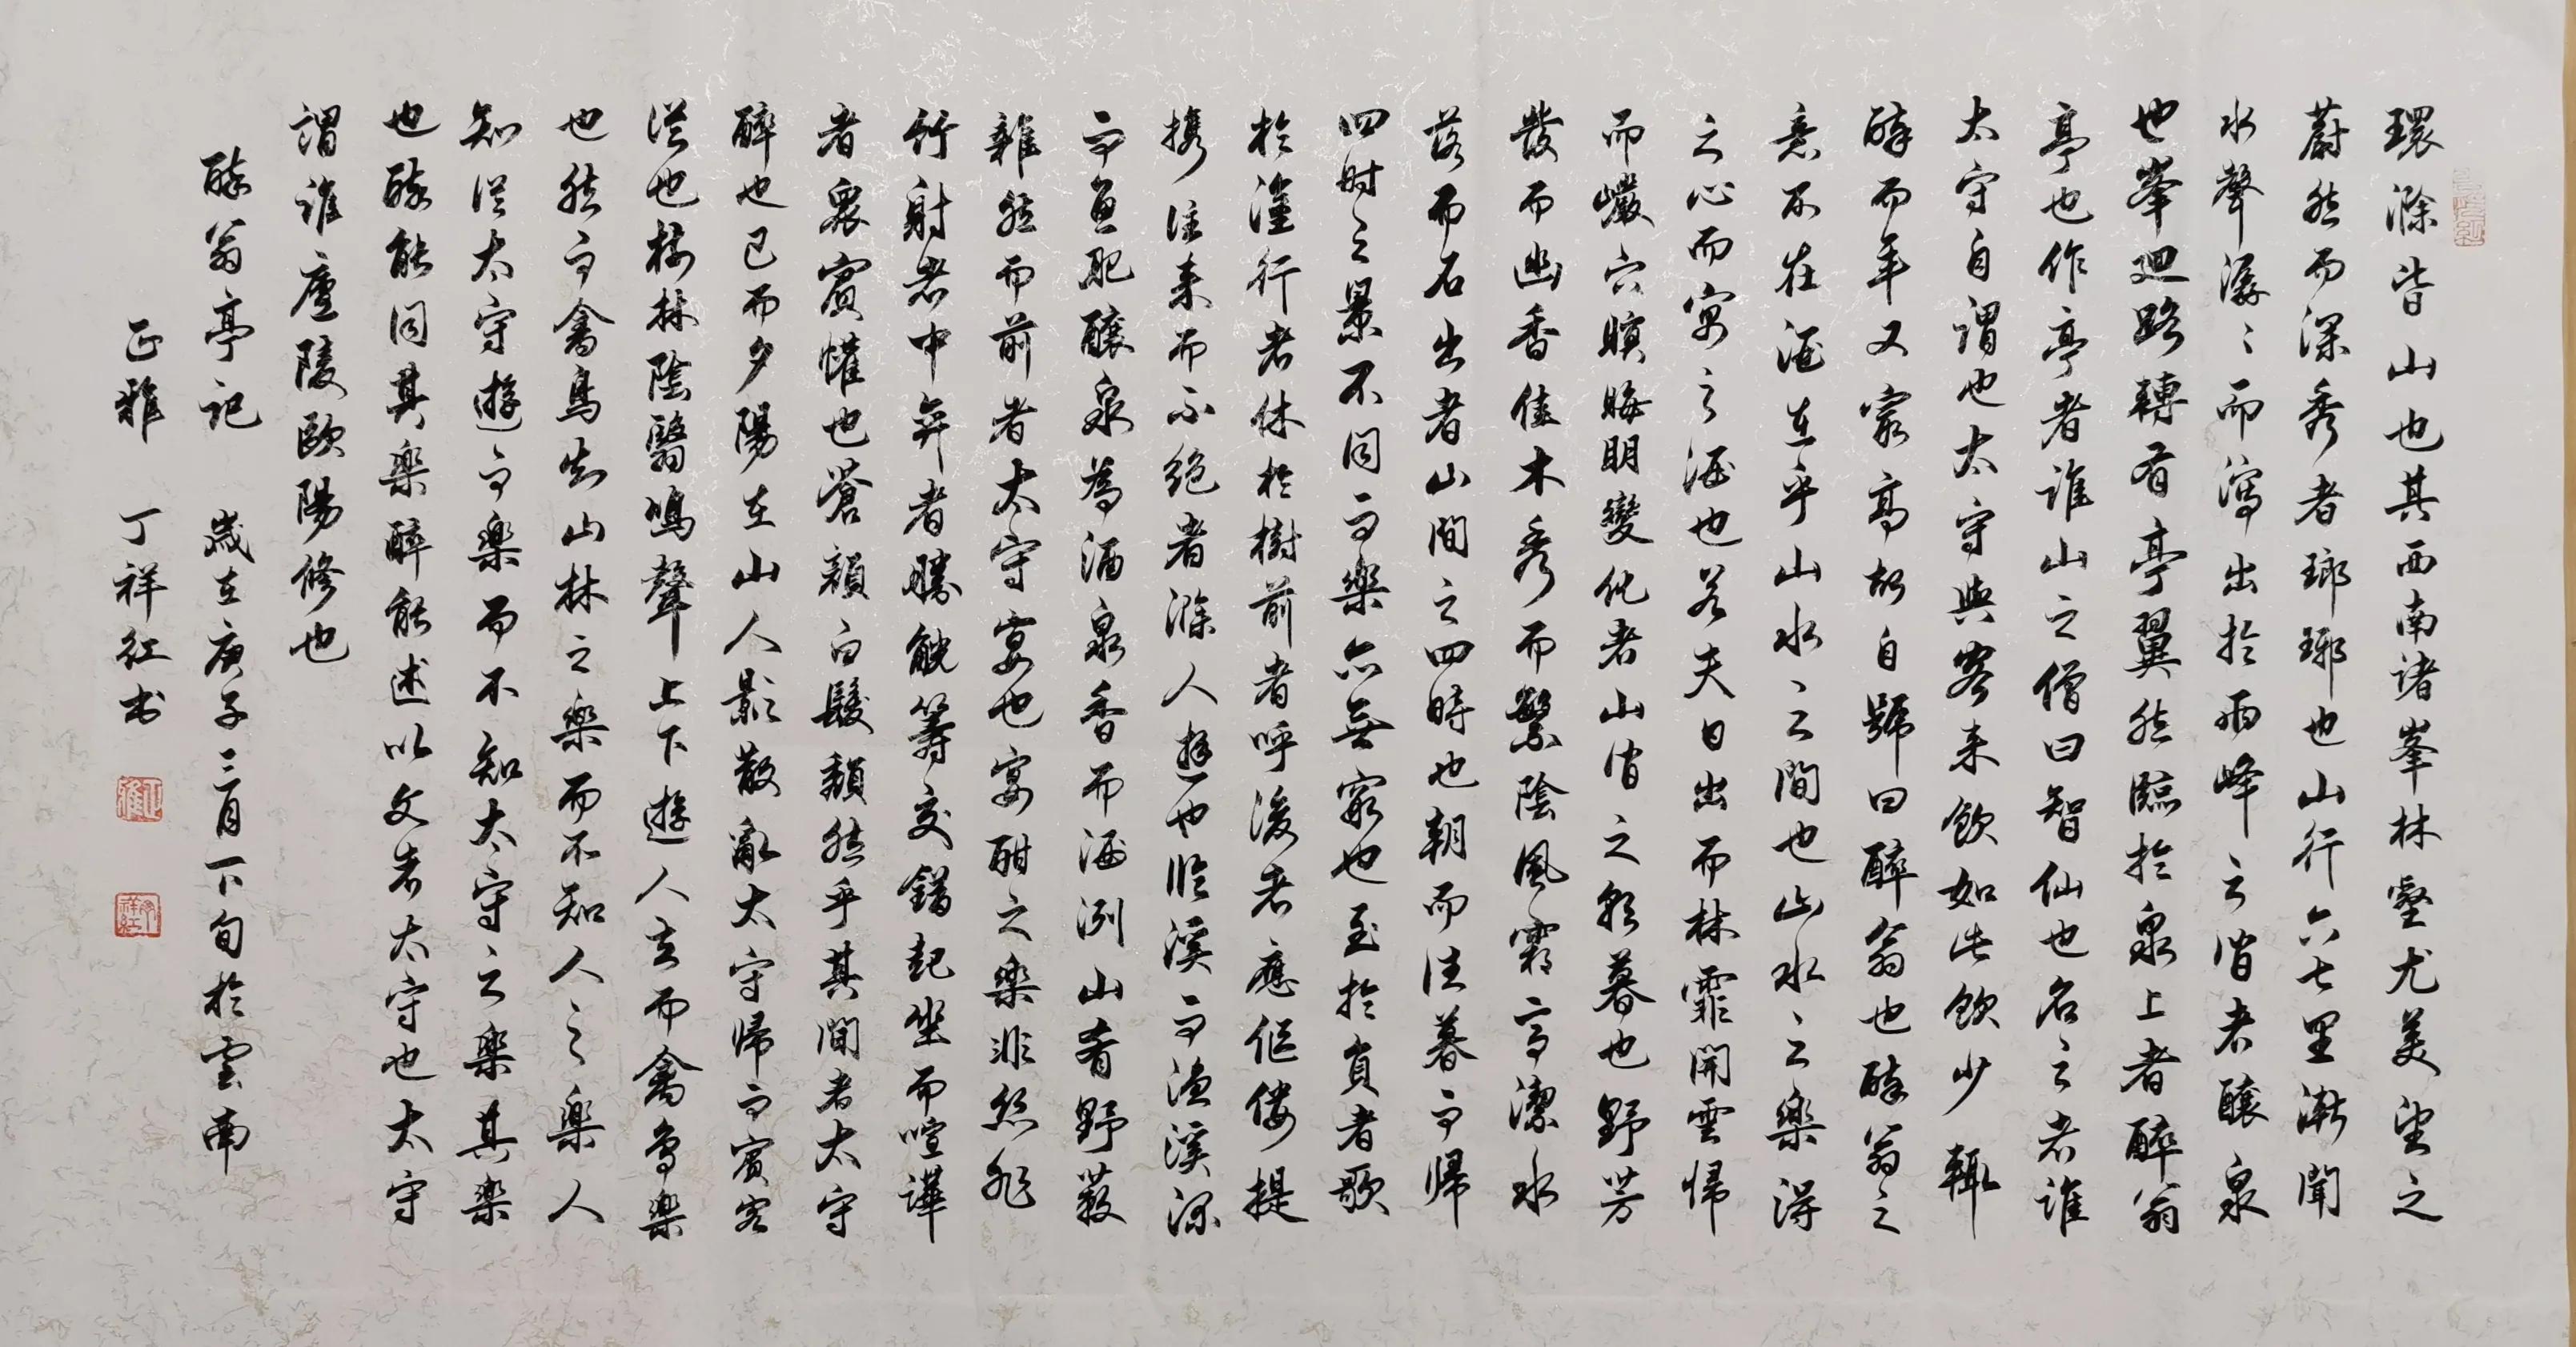 環滁皆山也其西南諸峯林壑尤美望之
蔚然而深秀者瑯琊也山行六七里漸聞
水聲潺〻而瀉出於兩峰之間者釀泉
也峯迴路轉有亭翼然臨於泉上者醉翁
亭也作亭者誰山之僧曰智仙也名之者誰
太守自謂也太守與客来飲如此飲少輒
醉而年又家高故自號曰醉翁也醉翁之
意不在酒在乎山水之間也山水之樂得
之心而寓之酒也若夫日出而林霏開雲歸
而巖穴暝晦明變化者山間之朝暮也野芳
發而幽香佳木秀而繁陰風霜高潔水
落而石出者山間之四時也朝而往暮而歸
四时之景不同而樂亦無窮也至於負者歌
於塗行者休於樹前者呼後者應傴僂提
携往来而不絶者滁人遊也临溪而渔溪深
而魚肥釀泉為酒泉香而酒洌山肴野蔌
雜然而前者太守宴也宴酣之樂非絲非
竹射者中弈者勝觥籌交錯起坐而喧譁
者衆賓懽也蒼顏白髮頹然乎其間者太守
醉也已而夕陽在山人影散亂太守歸而賓客
從也樹林陰翳鳴聲上下遊人去而禽鸟樂
也然而禽鳥知山林之樂而不知人之樂人
知從太守遊而樂而不知太守之樂其樂
也醉能同其樂醉能述以文者太守也太守
謂誰廬陵歐陽修也
醉翁亭記 歲在庚子三月下旬於雲南
正雅 丁祥红书
正雅
祥红